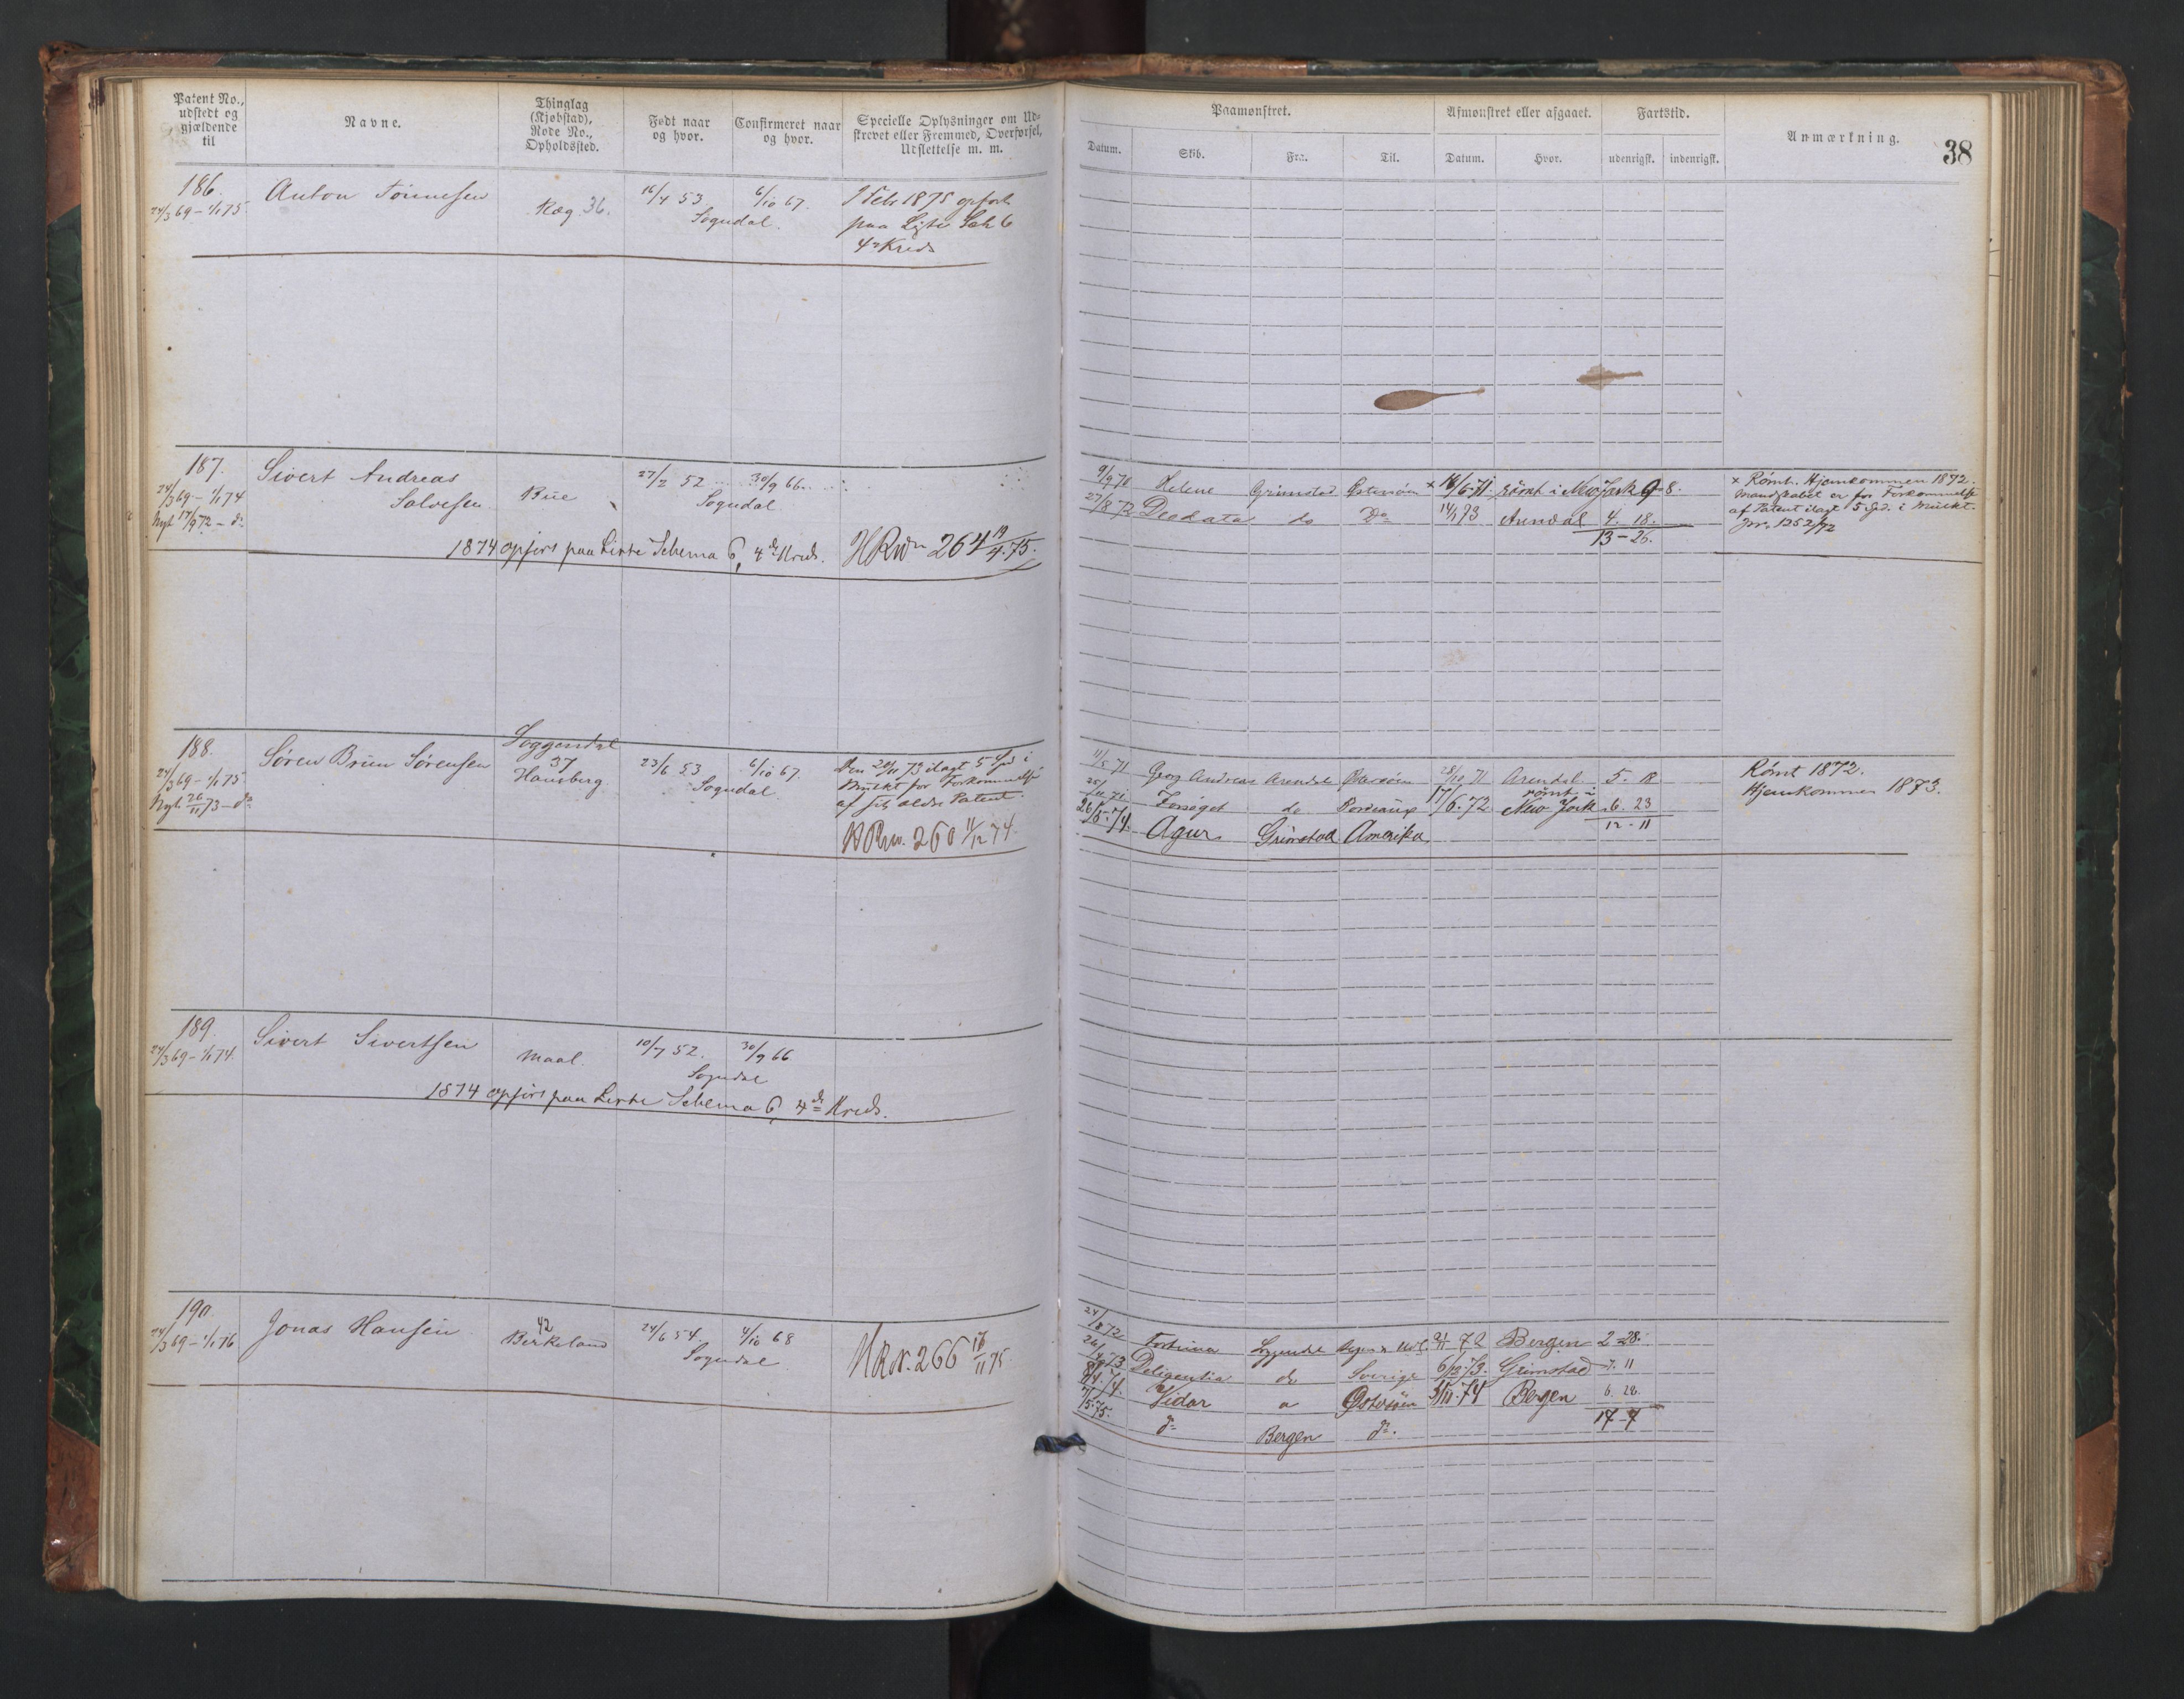 Patent No., udstedt og gjældende til
Navne.
Thinglag (Kjøbstad), Rode No., Opholdssted.
Født naar og hvor.
Confirmeret naar og hvor.
Specielle Oplysninger om Udskrevet eller Fremmed, Overførsel, Udslettelse m. m.
Paamønstret.
Afmønstret eller afgaaet.
Fartstid.
Anmærkning.
38
Datum. Skib. Fra. Til. Datum. Hvor. udenrigsk. indenrigsk.
186. Anton Tønnesen Ræg 36. 16/4 53 6/10 67. Febr 1875 opført
24/3 69 - 1/1 75 Sogndal. paa Liste Sch 6
4de Kreds
187. Sivert Andreas Bue 27/2 52 30/9 66
24/3 69 - 1/1 74 Salvesen Sogndal
Nyt 17/9 72 - do
1874 opført paa Liste Schema 6, 4de Kreds. 264 19/4.75.
9/9 70 Helene Grimstad Østersøen × 18/6 71. rømt i New York 9 - 8.
27/8 72 Deodata do Do 14/1 73 Arendal 4. 18.
13 - 26.
× Rømt. Hjemkommen 1872.
Mandskabet er for Forkommelse
af Patent ilagt 5 Spd. i Mulkt.
Jnr. 1252/72
188. Søren Bruun Sørensen Soggendal 23/6 53 6/10 67. Den 20/11 73 ilagt 5 Spd i
24/3 69 - 1/1 75 37 Hausberg. Sogndal Mulkt for Forkommelse
Nyt 26/11 73 - do af sit ældre Patent.
260 11/12 74.
11/5 71 Georg Andreas Arendal Østersøen 28/10 71 Arendal 5. 18
25/11 71 Forsøget do Bordeaux 17/6. 72 rømt i New York 6. 23
12 - 11
26/5. 74. Agur Grimstad Amerika,
Rømt 1872.
Hjemkommen 1873.
189. Sivert Sivertsen Maal. 10/7 52. 30/9 66
24/3 69 - 1/1 74. Sogndal
1874 opført paa Liste Schema 6, 4de Kreds.
190. Jonas Hansen 42 Birkeland 24/6 54. 4/10 68 266 16/11 75.
24/3 69 - 1/1 76 Sogndal
24/8 72 Fortuna Soggendal 72 Bergen 2 - 28.
Deligentia do Sverige 6/12. 73. Grimstad 7. 11
Vidar Østersøen 74 Bergen 6. 28.
17 - 7
do Bergen do.